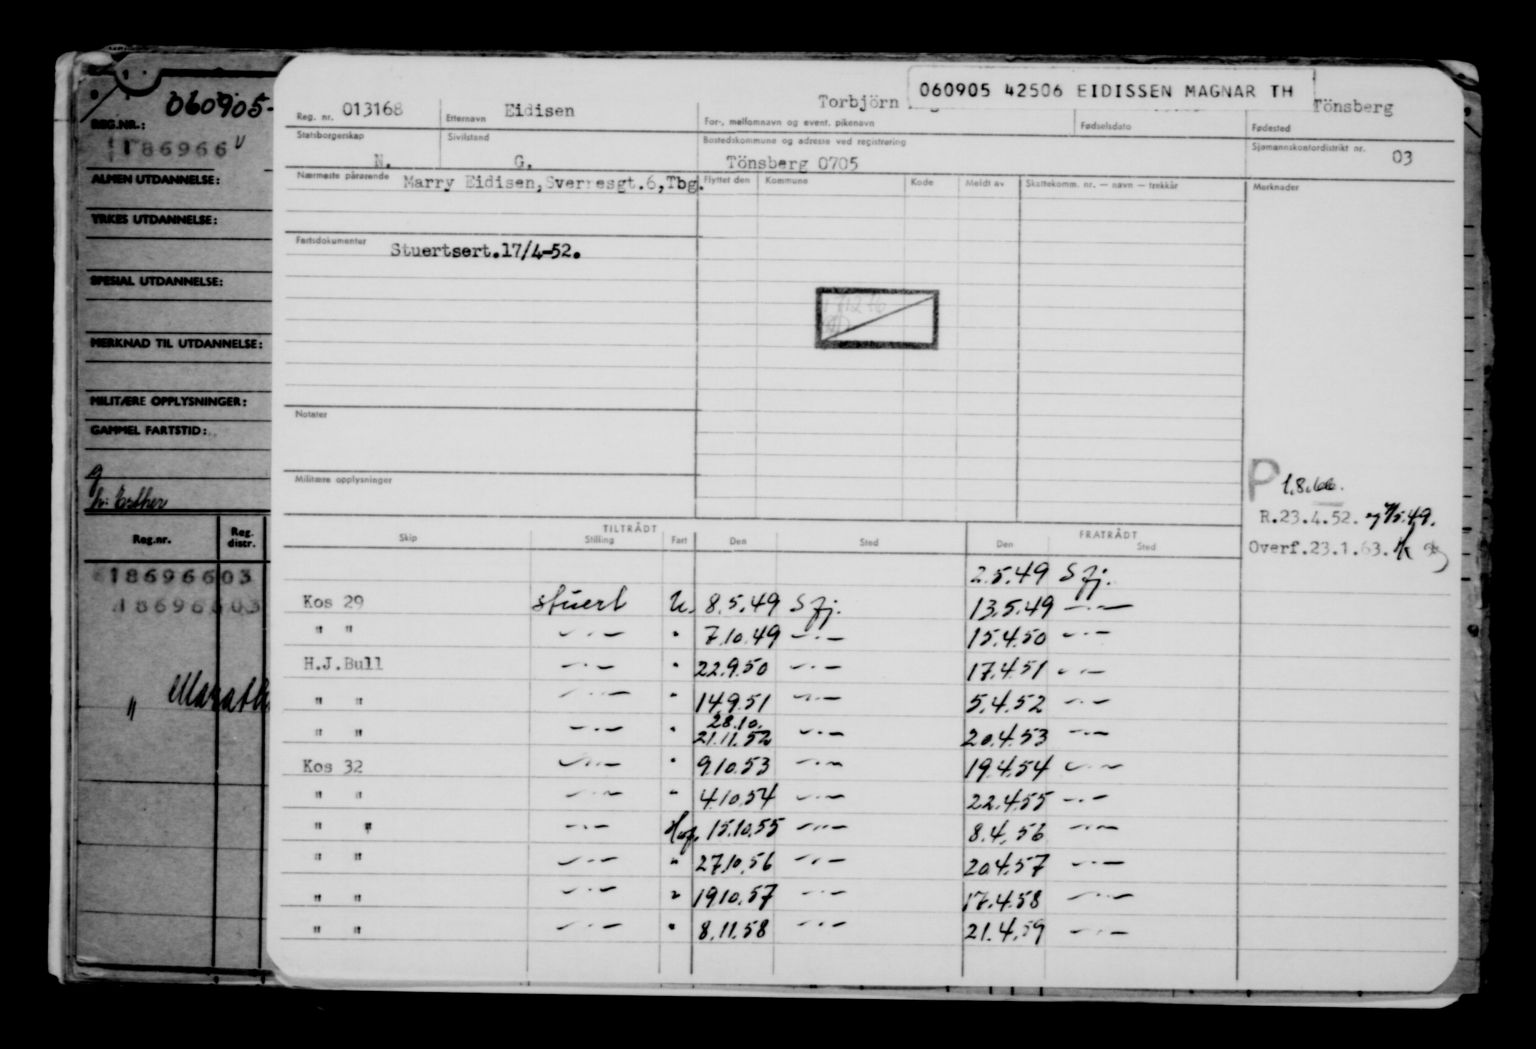 060905-
REG.NR.:
186966
ALMEN UTDANNELSE:
YRKES UTDANNELSE:
SPESIAL UTDANNELSE:
MERKNAD TIL UTDANNELSE:
MILITÆRE OPPLYSNINGER:
GAMMEL FARTSTID:
g
h: Esther
Reg.nr. Reg. distr.
186966 03
186966 03
" Marath
060905 42506 EIDISSEN MAGNAR TH
Reg. nr. 013168 Etternavn Eidisen Torbjörn For-, mellomnavn og event. pikenavn Fødselsdato Tönsberg Fødested
Statsborgerskap N. Sivilstand G. Bostedskommune og adresse ved registrering Tönsberg 0705 Sjømannskontordistrikt nr. 03
Nærmeste pårørende Marry Eidisen,Sverresgt.6,Tbg. Flyttet den Kommune Kode Meldt av Skattekomm. nr. — navn — trekkår Merknader
Fartsdokumenter Stuertsert.17/4-52.
Notater
Militære opplysninger
P 1.8.66.
R.23.4.52.
Overf.23.1.63.
TILTRÅDT FRATRÅDT
Skip Stilling Fart Den Sted Den Sted
2.5.49 Sfj.
Kos 29 stuert U. 8.5.49 Sfj. 13.5.49 —·—
" " —·— " 7.10.49 —·— 15.4.50 —·—
H.J.Bull —·— " 22.9.50 —·— 17.4.51 —·—
" " —·— " 14.9.51 —·— 5.4.52 —·—
28.10.
" " —·— " 21.11.52 —·— 20.4.53 —·—
Kos 32 —·— " 9.10.53 —·— 19.4.54 —·—
" " —·— " 4.10.54 —·— 22.4.55 —·—
" " —·— 15.10.55 —·— 8.4.56 —·—
" " —·— " 27.10.56 —·— 20.4.57 —·—
" " —·— " 19.10.57 —·— 17.4.58 —·—
" " —·— " 8.11.58 —·— 21.4.59 —·—